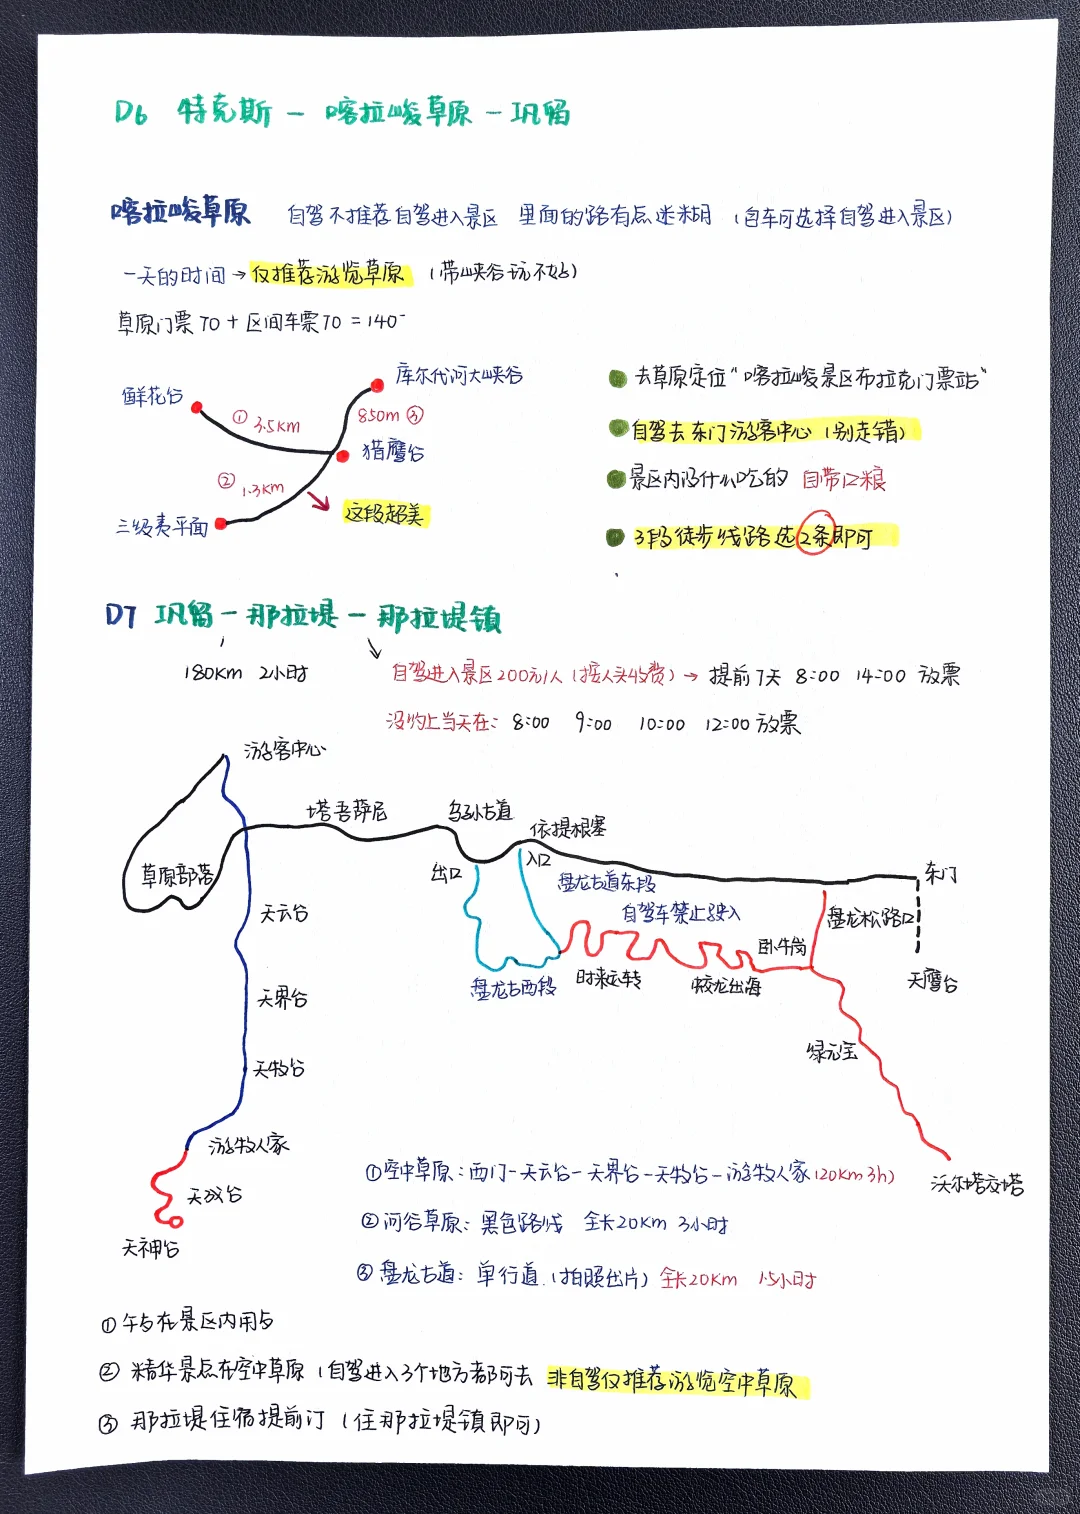 D6 特克斯 — 喀拉峻草原 — 巩留
喀拉峻草原 自驾不推荐自驾进入景区 里面的路有点迷糊 (包车可选择自驾进入景区)
一天的时间 → 仅推荐游览草原 (带峡谷玩不好)
草原门票70 + 区间车票70 = 140
鲜花谷
① 3.5km
库尔代河大峡谷
850m ③
猎鹰谷
② 1.3km
三级夷平面
这段超美
去草原定位“喀拉峻景区布拉克门票站”
自驾去东门游客中心 (别走错)
景区内没什么吃的 自带口粮
3段徒步线路选2条即可
D7 巩留 — 那拉堤 — 那拉堤镇
180km 2小时
自驾进入景区200元/人 (按人头收费) → 提前7天 8:00 14:00 放票
没约上当天在: 8:00 9:00 10:00 12:00 放票
游客中心
塔吾萨尼
乌孙古道
依提根塞
草原部落
出口
入口
盘龙古道东段
自驾车禁止驶入
东门
盘龙松路口
天鹰谷
天云谷
天界谷
天牧谷
游牧人家
天神谷
盘龙古西段
时来运转
蛟龙出海
卧牛岗
绿元宝
沃尔塔交塔
①空中草原: 西门-天云谷-天界谷-天牧谷-游牧人家 (20km 3h)
②河谷草原: 黑色路线 全长20km 3小时
③盘龙古道: 单行道 (拍照出片) 全长20km 1.5小时
①午与在景区内用与
②精华景点在空中草原 (自驾进入3个地方都可去 非自驾仅推荐游览空中草原
③那拉堤住宿提前订 (住那拉堤镇即可)